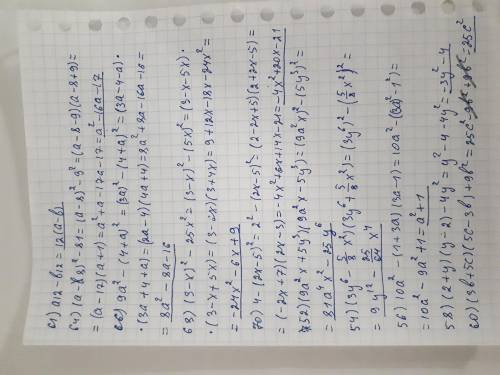 61) a12-b12=12(a-b)
64) (a-8)²-81=(a-8)²-9²=(a-8-9)(a-8+9)=
=(a-17)(a+1)=a²+a-17a-17=a²-16a-17
66) 9a²-(4+a)²=(3a)²-(4+a)²=(3a-4-a)·
·(3a+4+a)=(2a-4)(4a+4)=8a²+8a-16a-16=
=8a²-8a-16
63) (3-x)²-25x²=(3-x)²-(5x)²=(3-x-5x)·
·(3-x+5x)=(3-6x)(3+4x)=9+12x-18x-24x²=
=-24x²-6x+9
70) 4-(2x-5)²=2²-(2x-5)²=(2-2x+5)(2+2x-5)=
=(-2x+7)(2x-3)=-4x²+6x+14x-21=-4x²+20x-21
52) (9a²x+5y³)(9a²x-5y³)=(9a²x)²-(5y³)²=
=81a⁴x²-25y⁶
54) (3y⁶-5/8x²)(3y⁶+5/8x²)=(3y⁶)²-(5/8x²)²=
=9y¹²-25/64x⁴
56) 10a²-(1+3a)(3a-1)=10a²-(3a²-1²)=
=10a²-9a²+1=a²+1
58) (2+y)(y-2)-4y²=y²-4-4y²=-3y²-4
60) (3b+5c)(5c-3b)+9b²=25c²-9b²+9b²=25c²